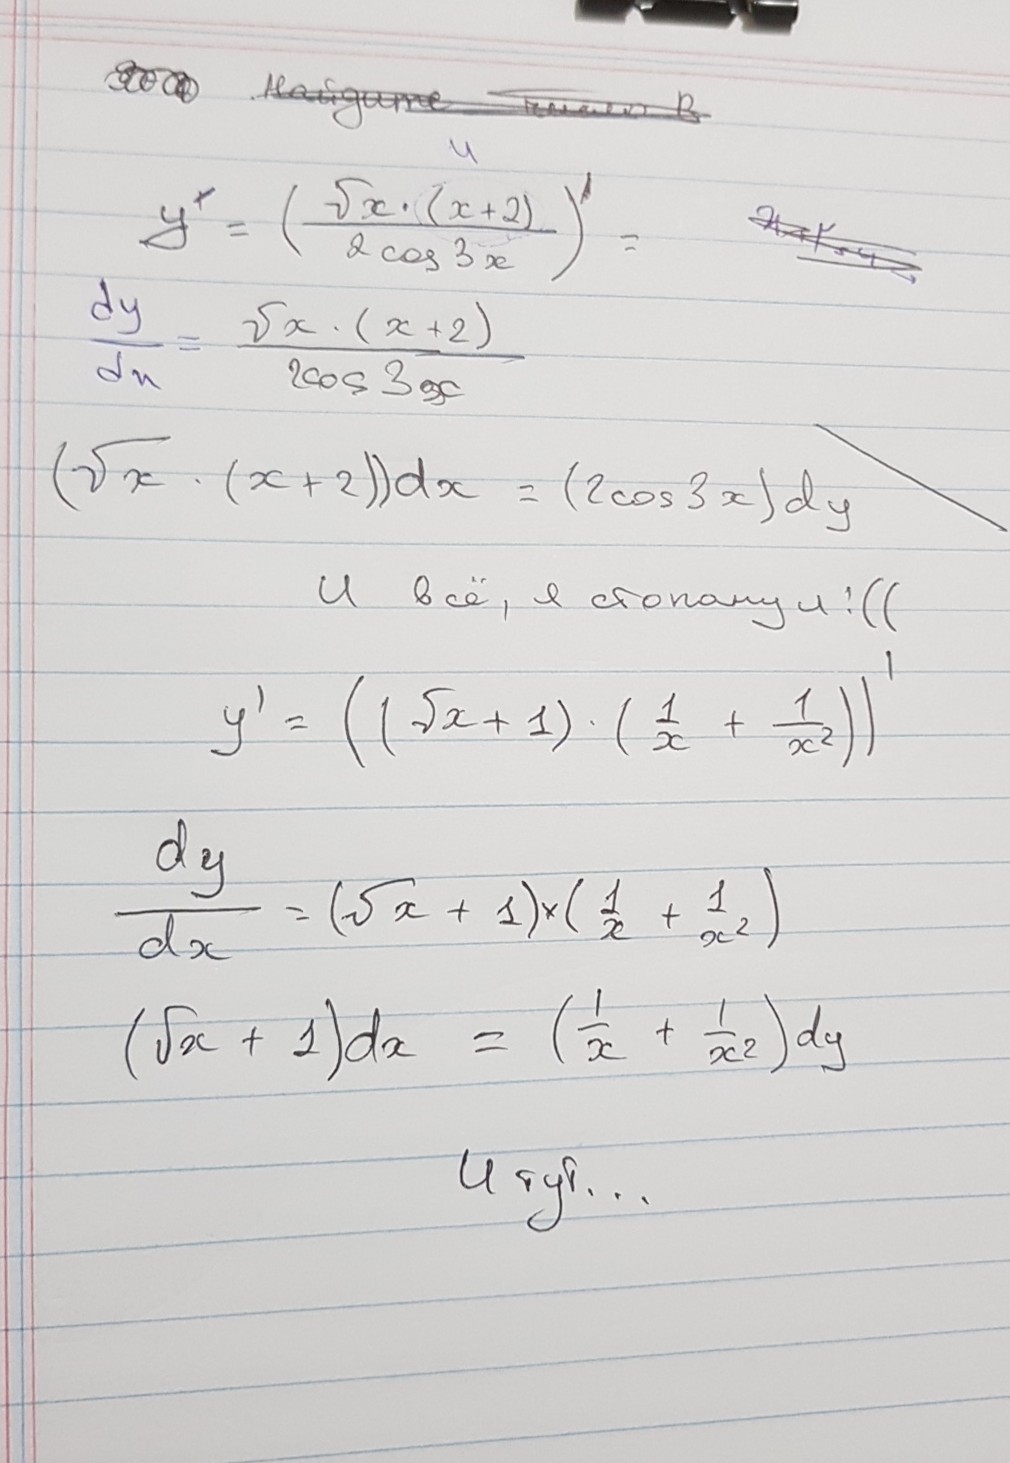 Найдите В
y' = (√x · (x+2) / 2 cos 3x)' =
dy/dx = √x · (x+2) / 2cos 3x
(√x · (x+2))dx = (2cos3x)dy
И всё, я стопанул!((
y' = ((√x + 1) · (1/x + 1/x²))'
dy/dx = (√x + 1)×(1/x + 1/x²)
(√x + 1)dx = (1/x + 1/x²)dy
И тут...